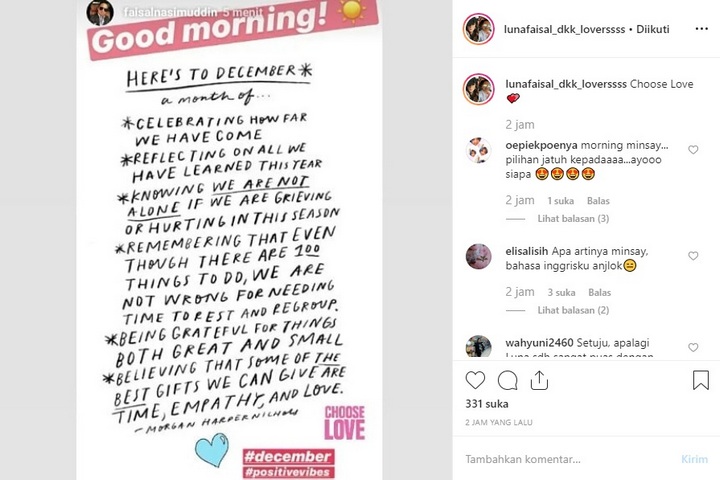 faisalnasimuddin 5 menit
Good morning!
HERE'S TO DECEMBER*
a month of...
*CELEBRATING HOW FAR
WE HAVE COME
*REFLECTING ON ALL WE
HAVE LEARNED THIS YEAR
*KNOWING WE ARE NOT
ALONE IF WE ARE GRIEVING
OR HURTING IN THIS SEASON
*REMEMBERING THAT EVEN
THOUGH THERE ARE 100
THINGS TO DO, WE ARE
NOT WRONG FOR NEEDING
TIME TO REST AND REGROUP.
*BEING GRATEFUL FOR THINGS
BOTH GREAT AND SMALL
*BELIEVING THAT SOME OF THE
BEST GIFTS WE CAN GIVE ARE
TIME, EMPATHY, AND LOVE.
- MORGAN HARPER NICHOLS
CHOOSE
LOVE
#december
#positivevibes
lunafaisal_dkk_loverssss • Diikuti
lunafaisal_dkk_loverssss Choose Love
💘
2 jam
oepiekpoenya morning minsay...
pilihan jatuh kepadaaaa...ayooo
siapa 🤩🤩🤩🤩
2 jam 1 suka Balas
Lihat balasan (3)
elisalisih Apa artinya minsay,
bahasa inggrisku anjlok😑
2 jam 3 suka Balas
Lihat balasan (2)
wahyuni2460 Setuju, apalagi
Luna sdh sangat puas dengan
331 suka
2 JAM YANG LALU
Tambahkan komentar...
Kirim